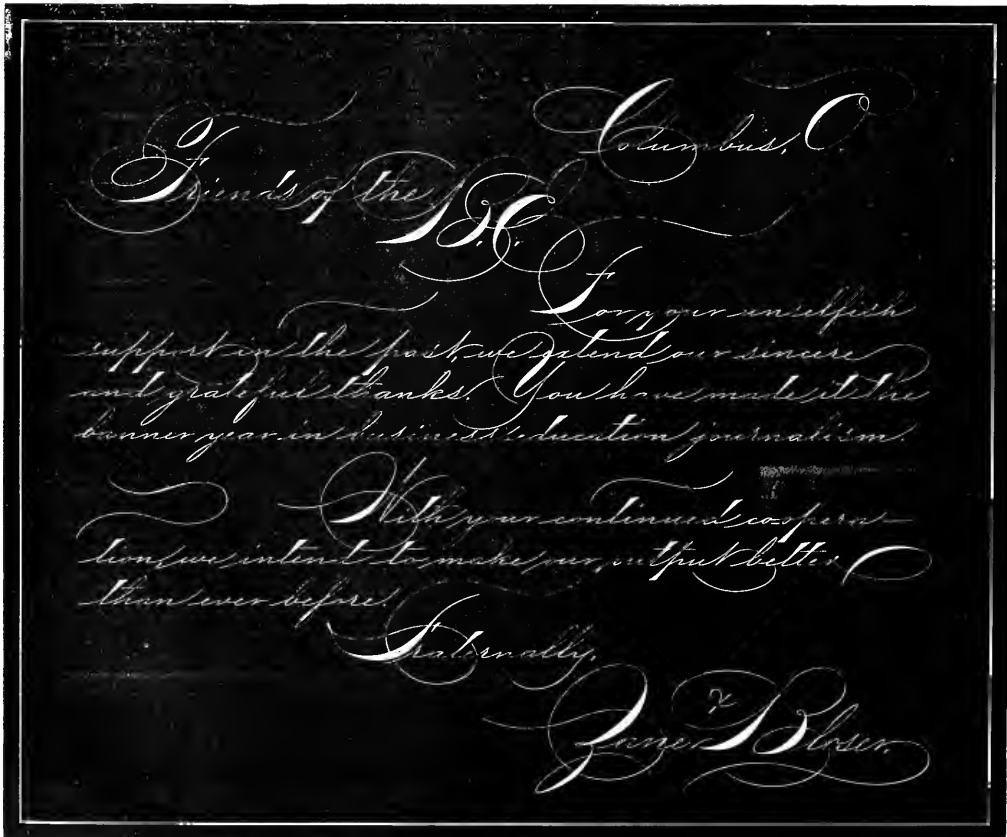 Columbus, O.
Friends of the
B.E.
For your unselfish
support in the past, we extend our sincere
and grateful thanks. You have made it the
banner year in business education journalism.
With your continued co-opera-
tion, we intend to make our output better
than ever before.
Fraternally,
Zaner & Bloser.